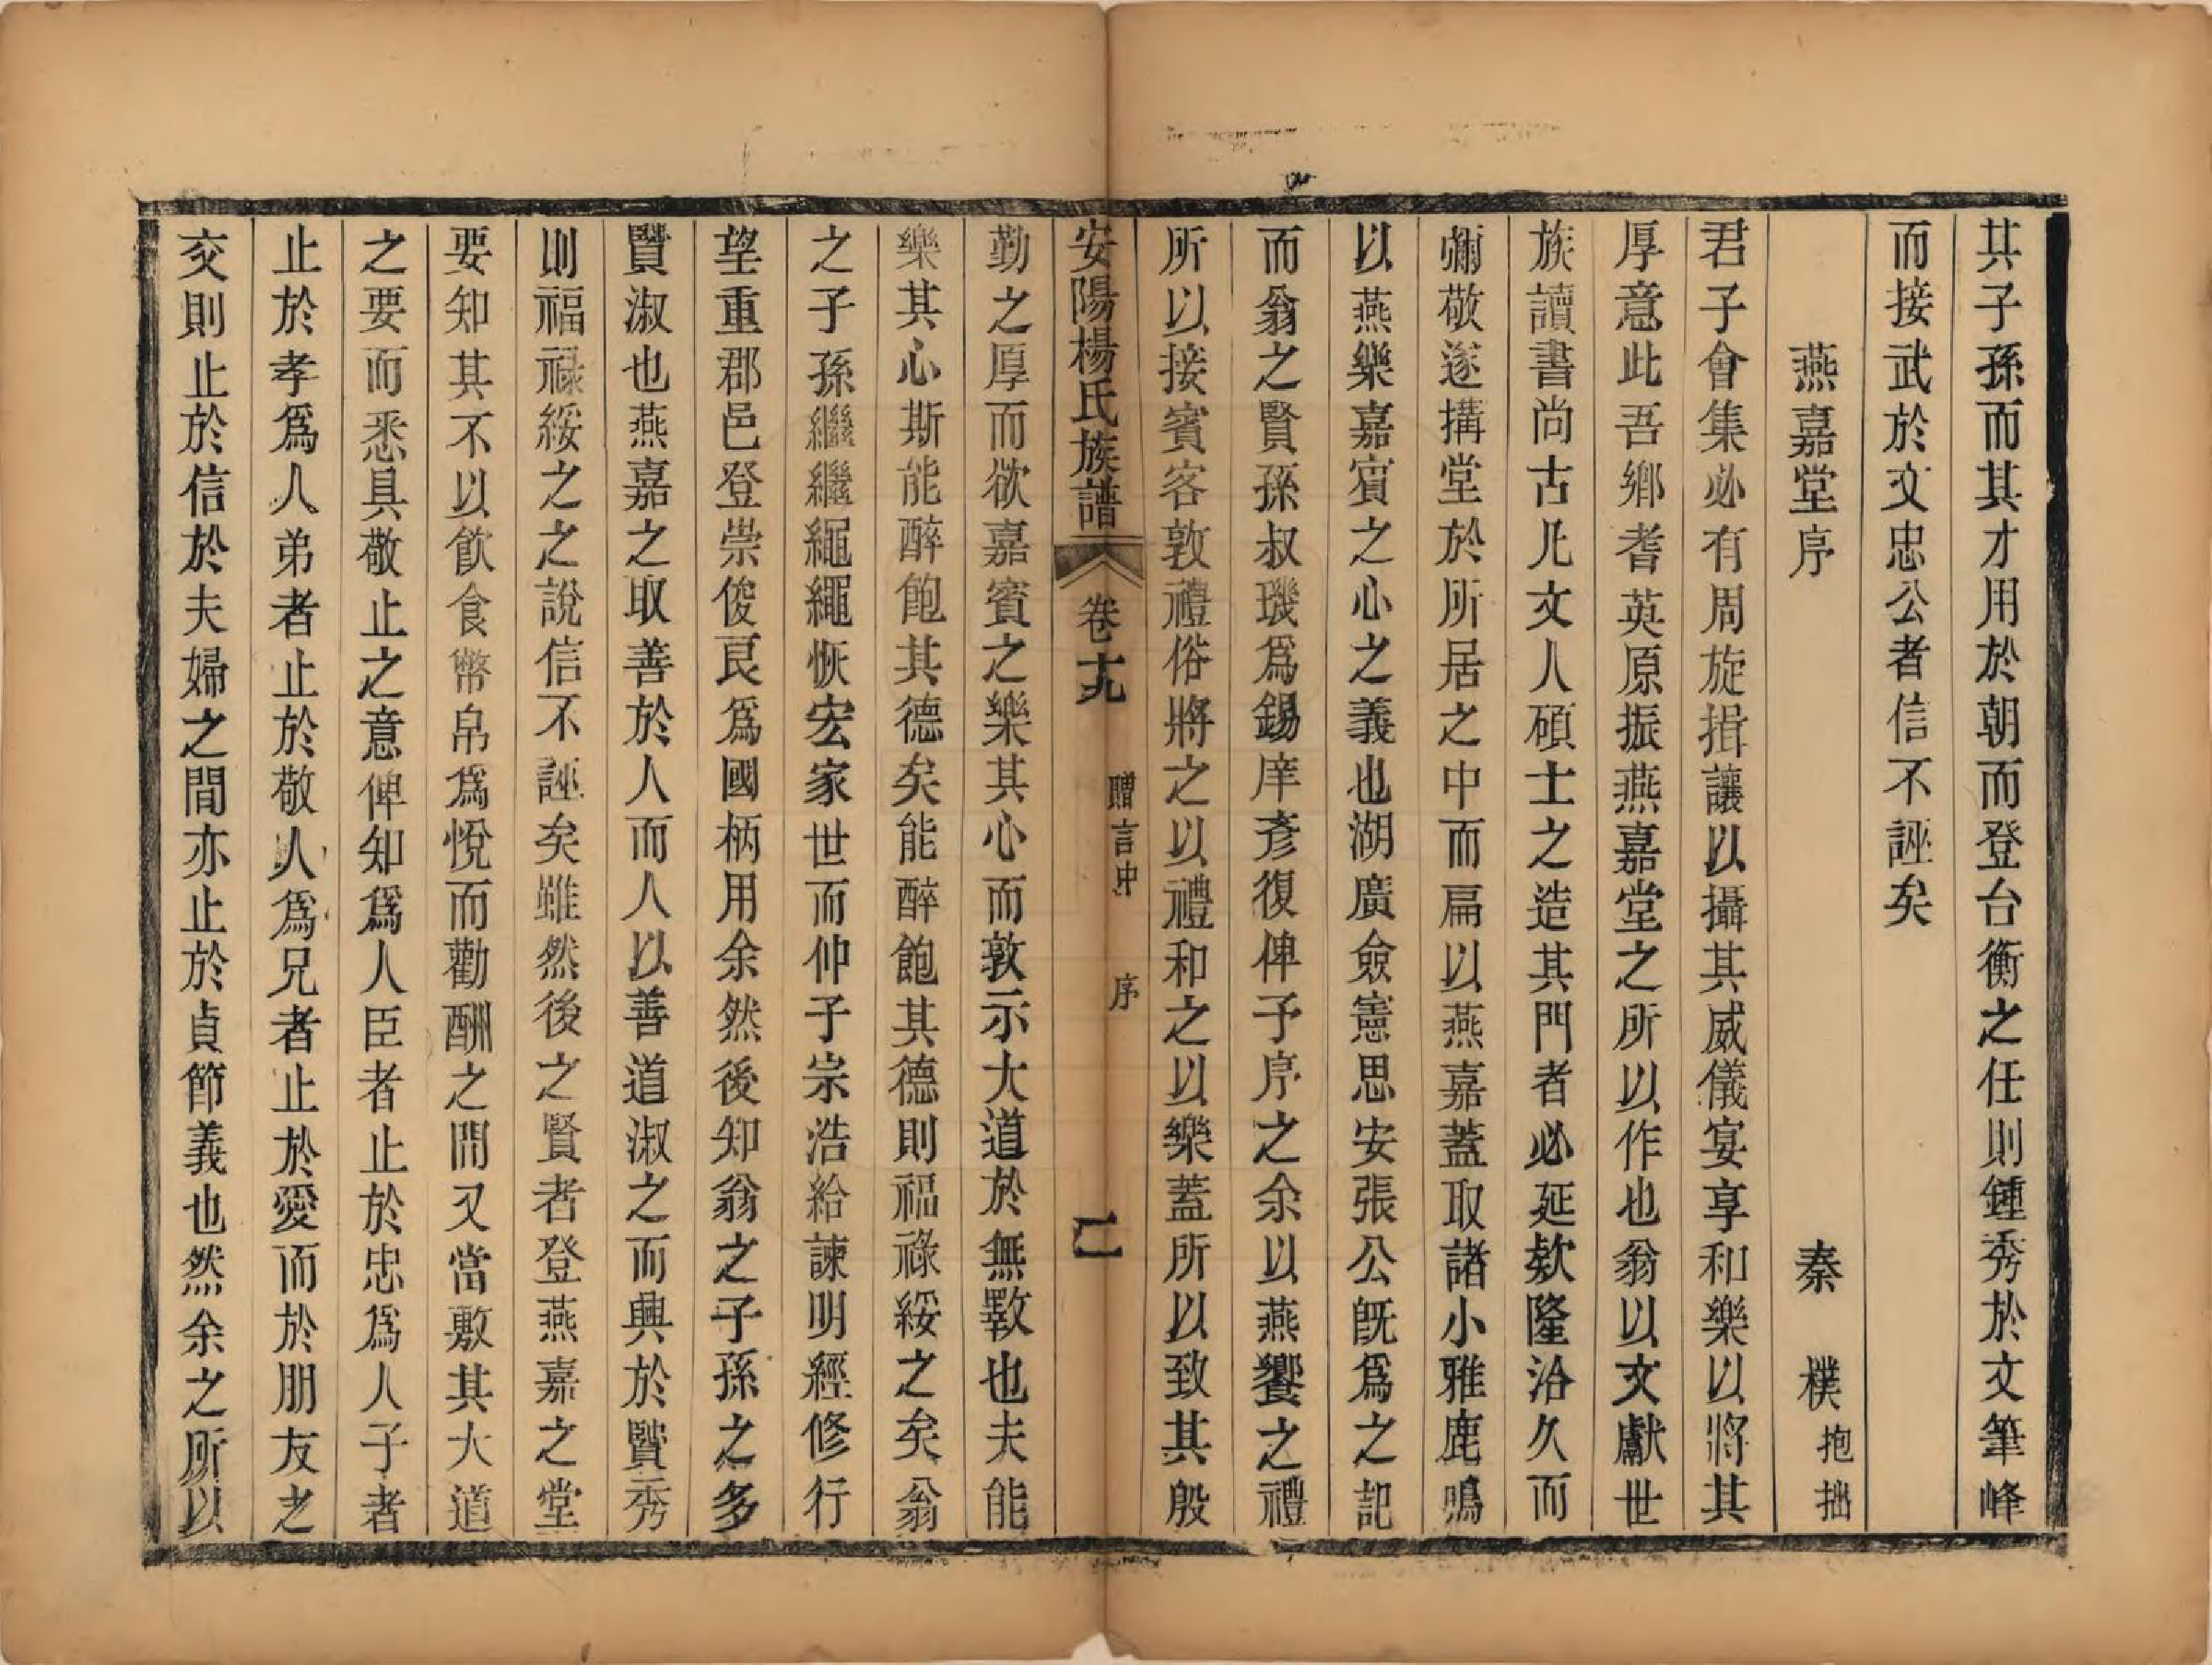 其子孫而其才用於朝而登台衡之任則鍾秀於文筆峰
而接武於文忠公者信不誣矣
燕嘉堂序 秦樸抱拙
君子會集必有周旋揖讓以攝其威儀宴享和樂以將其
厚意此吾鄉耆英原振燕嘉堂之所以作也翁以文獻世
族讀書尚古凡文人碩士之造其門者必延欵隆洽久而
彌敬遂搆堂於所居之中而扁以燕嘉蓋取諸小雅鹿鳴
以燕樂嘉賓之心之義也湖廣僉憲思安張公旣爲之記
而翁之賢孫叔璣爲錫庠彥復俾予序之余以燕饗之禮
所以接賓客敦禮俗將之以禮和之以樂蓋所以致其殷
安陽楊氏族譜 卷十九 贈言中 序 二
勤之厚而欲嘉賓之樂其心而敦示大道於無斁也夫能
樂其心斯能醉飽其德矣能醉飽其德則福祿綏之矣翁
之子孫繼繼繩繩恢宏家世而仲子宗浩給諫明經修行
望重郡邑登崇俊良爲國柄用余然後知翁之子孫之多
賢淑也燕嘉之取善於人而人以善道淑之而興於賢秀
則福祿綏之之說信不誣矣雖然後之賢者登燕嘉之堂
要知其不以飲食幣帛爲悅而勸酬之間又當敷其大道
之要而悉具敬止之意俾知爲人臣者止於忠爲人子者
止於孝爲人弟者止於敬人爲兄者止於愛而於朋友之
交則止於信於夫婦之間亦止於貞節義也然余之所以